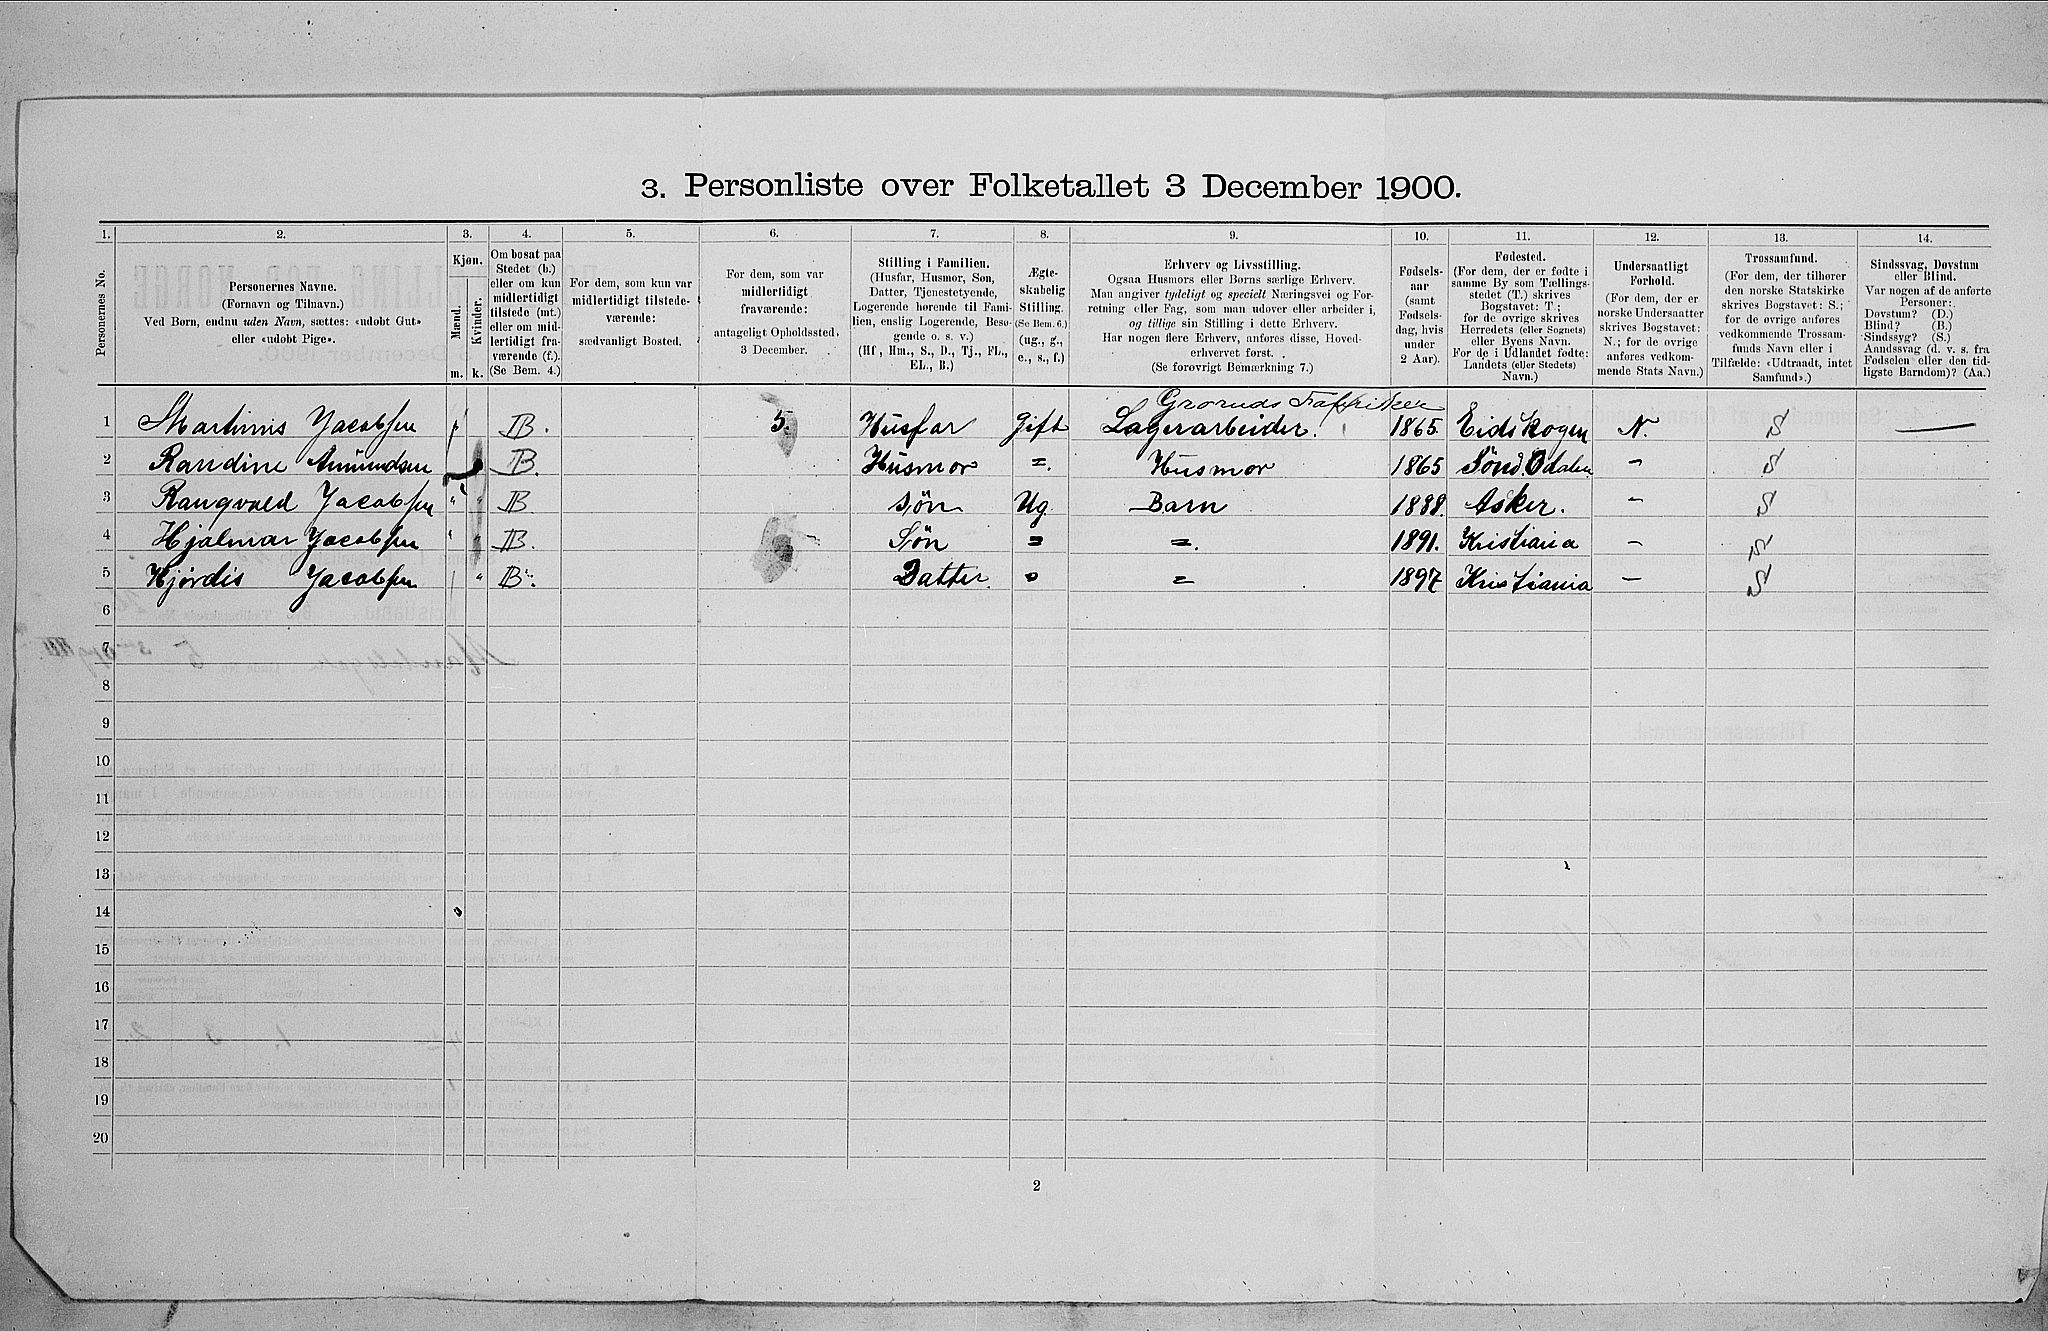 3. Personliste over Folketallet 3 December 1900.
1. 2. 3. 4. 5. 6. 7. 8. 9. 10. 11. 12. 13. 14.
Personernes No.
Personernes Navne.
(Fornavn og Tilnavn.)
Ved Børn, endnu uden Navn, sættes: «udøbt Gut»
eller «udøbt Pige».
Kjøn.
Mænd.
Kvinder.
m. k.
Om bosat paa
Stedet (b.)
eller om kun
midlertidigt
tilstede (mt.)
eller om mid-
lertidigt fra-
værende (f.).
(Se Bem. 4.)
For dem, som kun var
midlertidigt tilstede-
værende:
sædvanligt Bosted.
For dem, som var
midlertidigt
fraværende:
antageligt Opholdssted.
3 December.
Stilling i Familien.
(Husfar, Husmor, Søn,
Datter, Tjenestetyende,
Logerende hørende til Fami-
lien, enslig Logerende, Besø-
gende o. s. v.)
(Hf., Hm., S., D., Tj., FL.,
EL., B.)
Ægte-
skabelig
Stilling.
(Se Bem. 6.)
(ug., g.,
e., s., f.)
Erhverv og Livsstilling.
Ogsaa Husmors eller Børns særlige Erhverv.
Man angiver tydeligt og specielt Næringsvei og For-
retning eller Fag, som man udøver eller arbeider i,
og tillige sin Stilling i dette Erhverv.
Har nogen flere Erhverv, anføres disse, Hoved-
erhvervet først.
(Se forøvrigt Bemærkning 7.)
Fødsels-
aar
(samt
Fødsels-
dag, hvis
under
2 Aar).
Fødested.
(For dem, der er fødte i
samme By som Tællings-
stedet (T.) skrives
Bogstavet: T.;
for de øvrige skrives
Herredets (eller Sognets)
eller Byens Navn.
For de i Udlandet fødte:
Landets (eller Stedets)
Navn.)
Undersaatligt
Forhold.
(For dem, der er
norske Undersaatter
skrives Bogstavet:
N.; for de øvrige
anføres vedkom-
mende Stats Navn.)
Trossamfund.
(For dem, der tilhører
den norske Statskirke
skrives Bogstavet: S.;
for de øvrige anføres
vedkommende Trossam-
funds Navn eller i
Tilfælde: «Udtraadt, intet
Samfund».)
Sindssvag, Døvstum
eller Blind.
Var nogen af de anførte
Personer:
Døvstum? (D.)
Blind? (B.)
Sindssyg? (S.)
Aandssvag (d. v. s. fra
Fødselen eller den tid-
ligste Barndom)? (Aa.)
Grorruds Fabrikker
1 Martinus Jacobsen B. 5. Husfar Gift Lagerarbeider. 1865. Eidskogen N. S —
2 Randine Amundsen B. Husmor =. Husmor 1865 Sønd. Odalen - S
3 Rangvald Jacobsen " B Søn Ug Barn 1888. Asker. - S
4 Hjalmar Jacobsen " B. Søn = =. 1891. Kristiania - S
5 Hjørdis Jacobsen " B. Datter. " = 1897 Kristiania - S
6
7
8
9
10
11
12
13
14
15
16
17
18
19
20
2